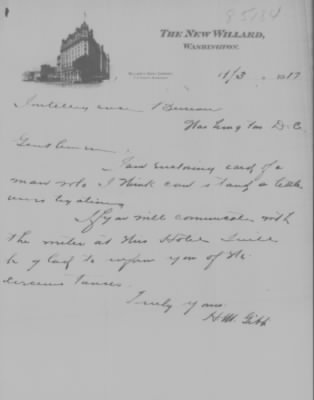 85134
THE NEW WILLARD,
WASHINGTON.
11/3 1917
Intelligence Bureau
Washington D.C.
Gentlemen
I am enclosing card of a
man who I think can stand a little
investigation
If you will communicate with
the writer at this Hotel I will
be glad to inform you of the
circumstances.
Truly yours
H.M. Gibb